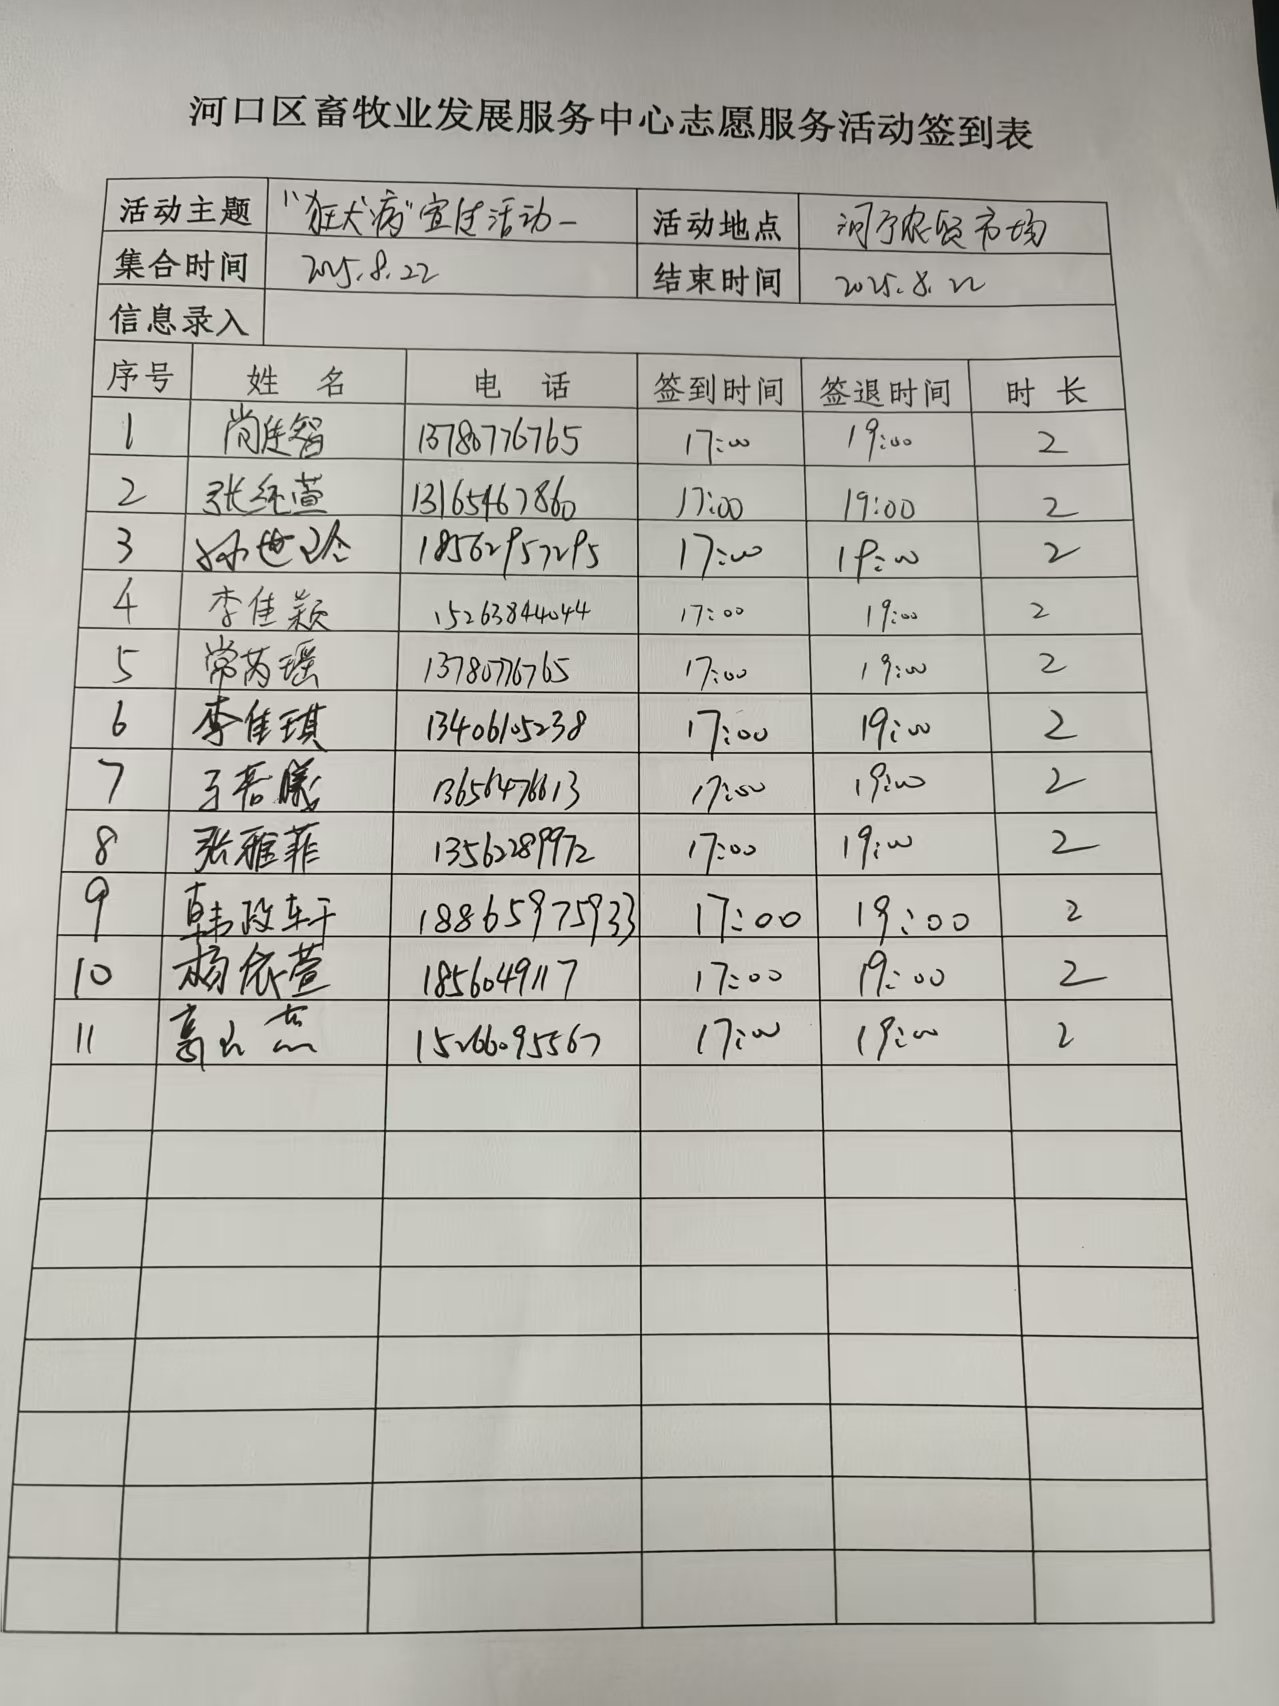 河口区畜牧业发展服务中心志愿服务活动签到表
活动主题 "狂犬病"宣传活动 活动地点 河宁农贸市场
集合时间 2025.8.22 结束时间 2025.8.22
信息录入
序号 姓 名 电 话 签到时间 签退时间 时 长
1 智 13780776765 17:00 19:00 2
2 张 萱 13165467860 17:00 19:00 2
3 孙世玲 18562957295 17:00 19:00 2
4 李佳颖 15263844044 17:00 19:00 2
5 常芮瑶 13780776765 17:00 19:00 2
6 李佳琪 13406105238 17:00 19:00 2
7 17:00 19:00 2
8 张雅菲 13562289972 17:00 19:00 2
9 韩政轩 18865975933 17:00 19:00 2
10 杨依萱 1856049117 17:00 19:00 2
11 高 15266095567 17:00 19:00 2